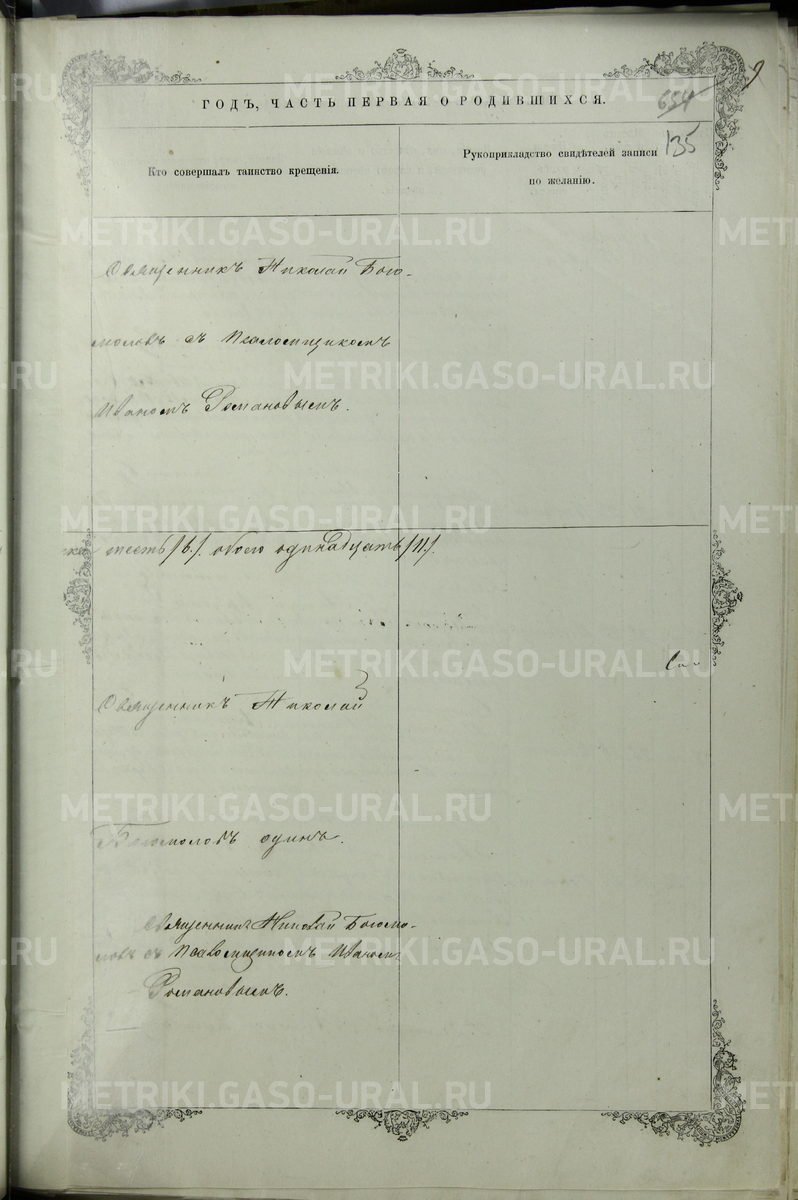 ГОДЪ, ЧАСТЬ ПЕРВАЯ О РОДИВШИХСЯ.
654
9
135
Кто совершалъ таинство крещенія.
Рукоприкладство свидѣтелей записи
по желанію.
Священникъ Николай Бого-
моловъ съ псаломщикомъ
Иваномъ Романовымъ.
шесть /6/. обоего одинадцать /11/.
Священникъ Николай
Богомоловъ одинъ.
Священникъ Николай Богомо-
ловъ съ псаломщикомъ Иваномъ
Романовымъ.
METRIKI.GASO-URAL.RU